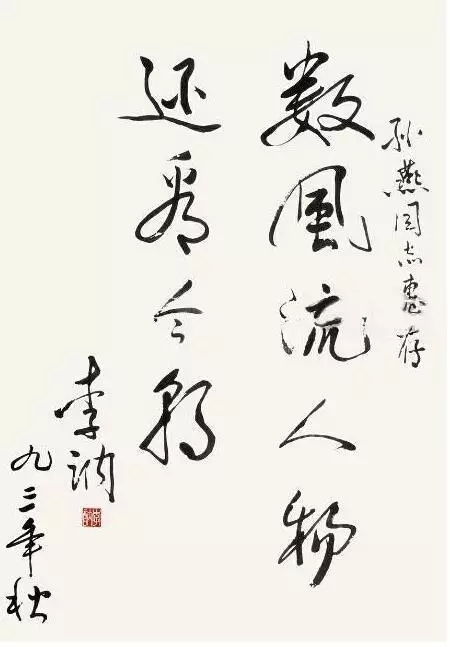 孙燕同志惠存
数风流人物
还看今朝
李讷
九三年秋